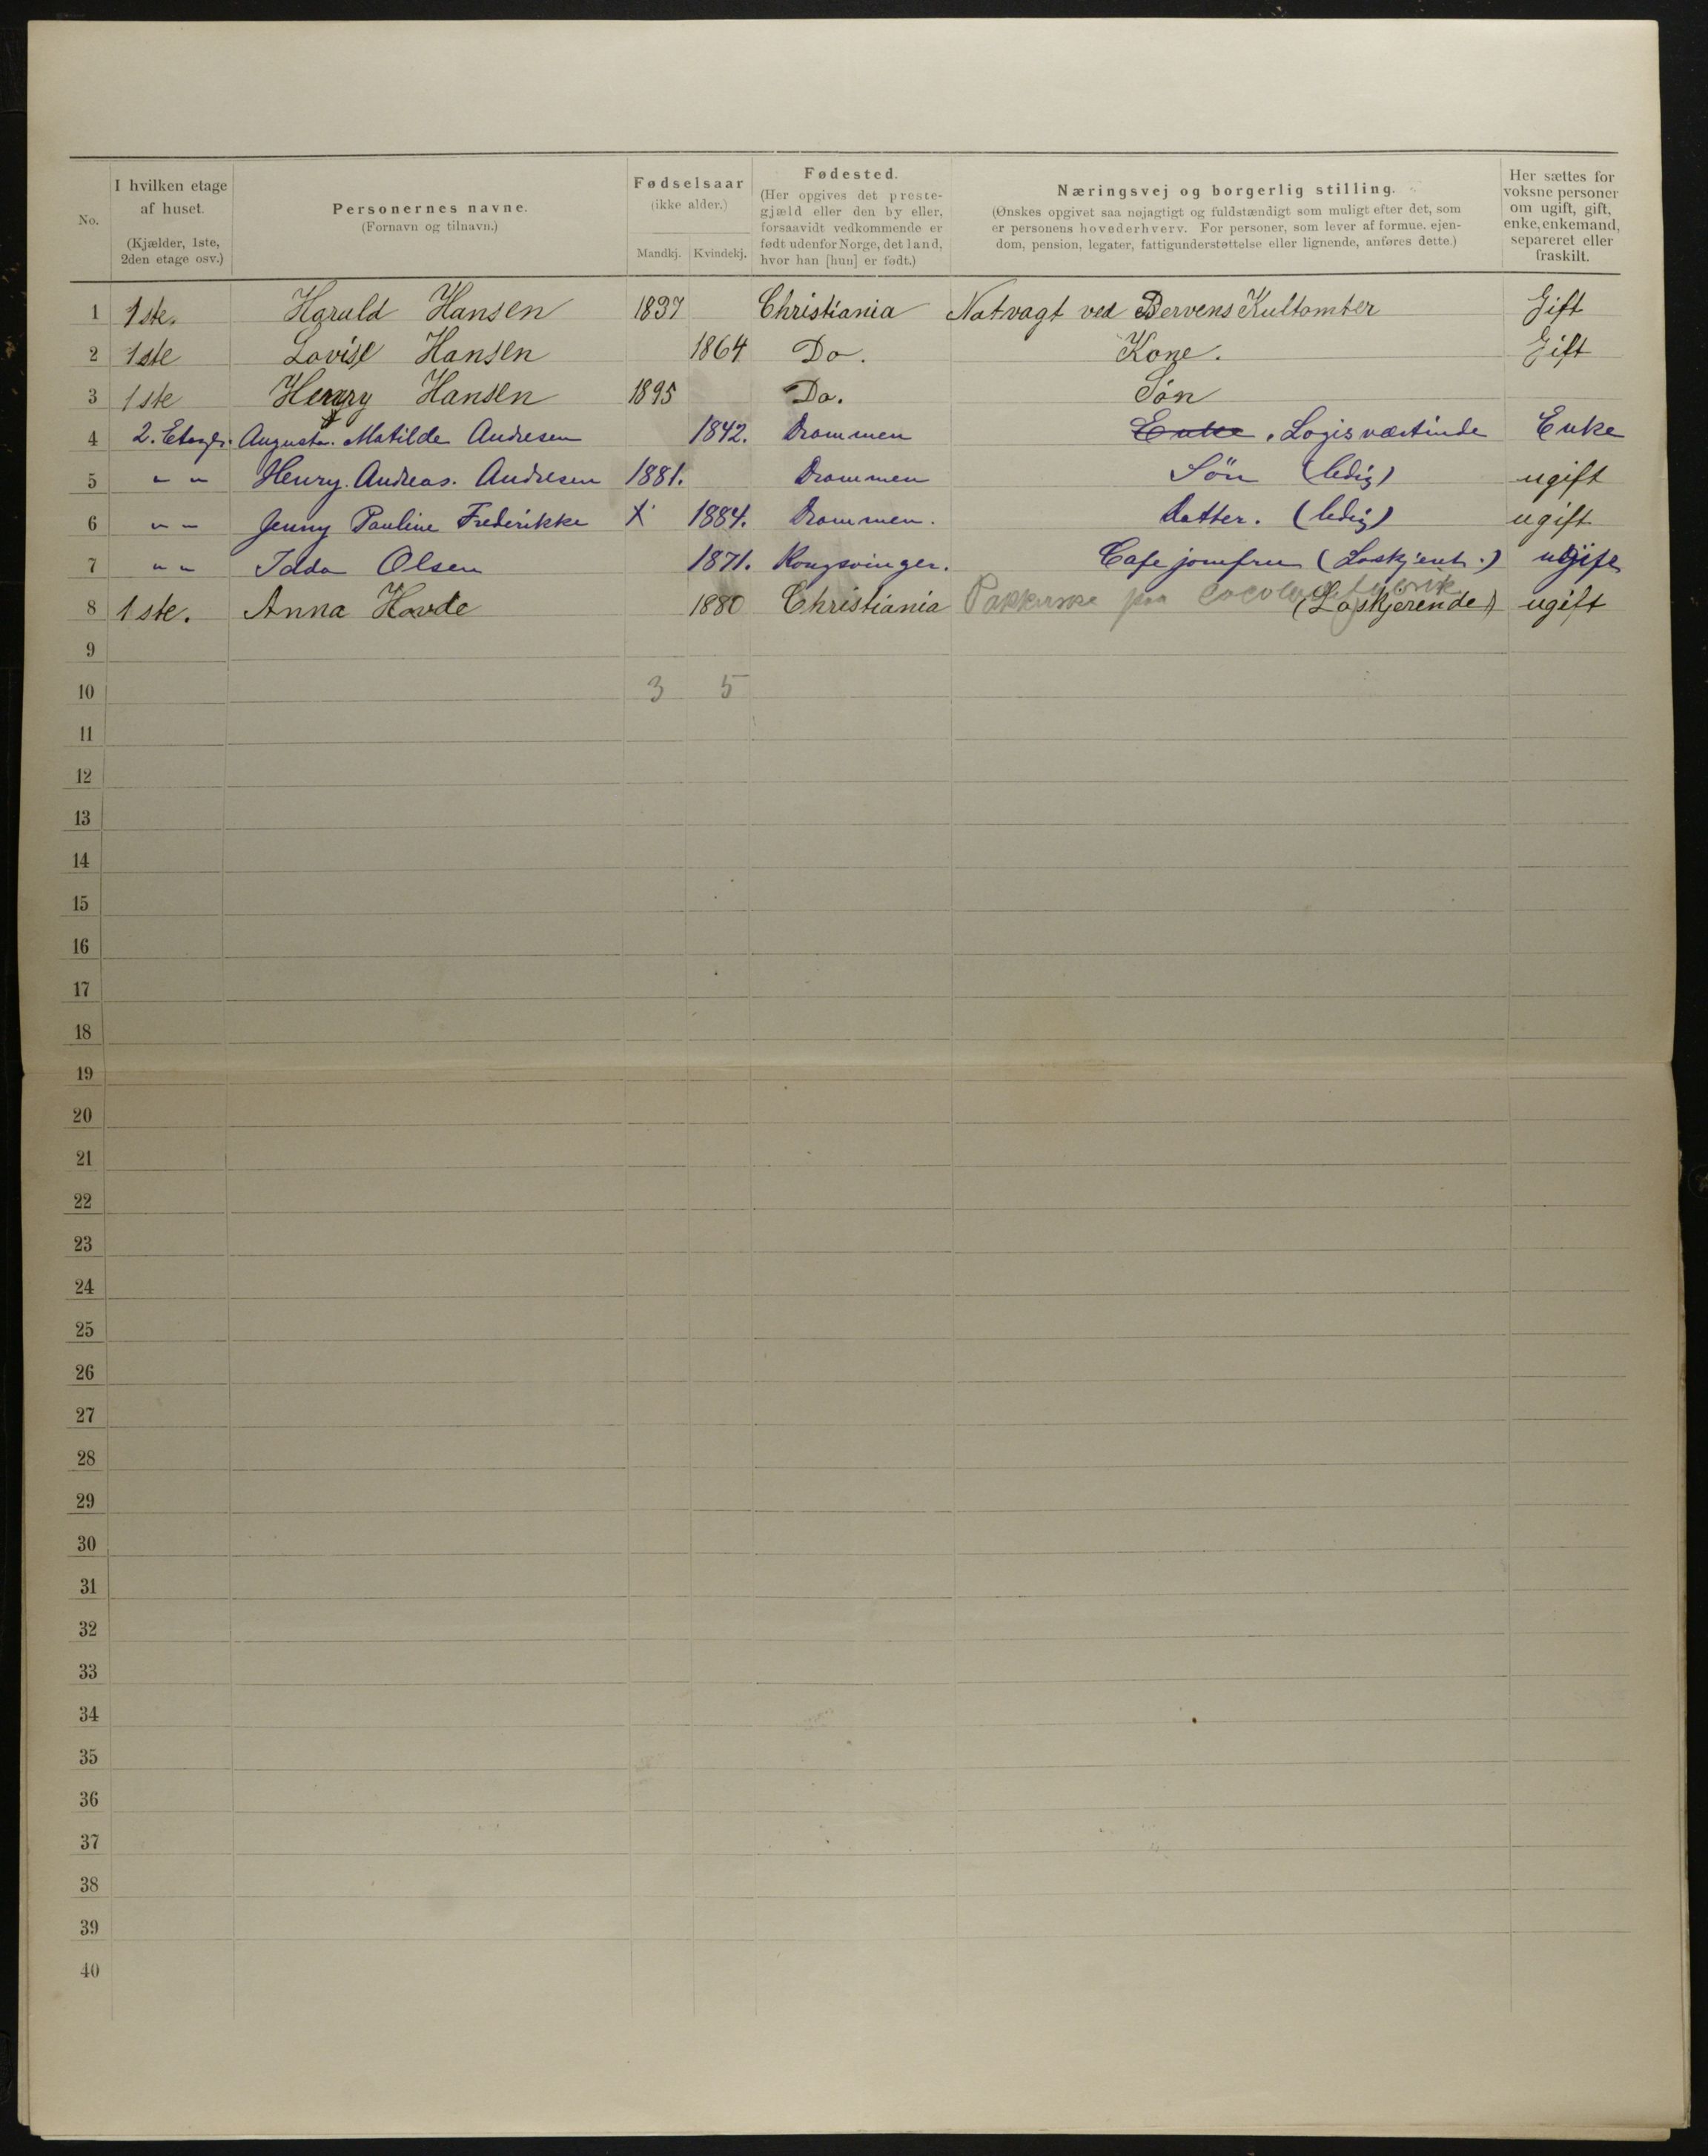 No.
I hvilken etage af huset. (Kjælder, 1ste, 2den etage osv.)
Personernes navne. (Fornavn og tilnavn.)
Fødselsaar (ikke alder.) Mandkj. Kvindekj.
Fødested. (Her opgives det prestegjæld eller den by eller, forsaavidt vedkommende er født udenfor Norge, det land, hvor han [hun] er født.)
Næringsvej og borgerlig stilling. (Ønskes opgivet saa nøjagtigt og fuldstændigt som muligt efter det, som er personens hovederhverv. For personer, som lever af formue, ejendom, pension, legater, fattigunderstøttelse eller lignende, anføres dette.)
Her sættes for voksne personer om ugift, gift, enke, enkemand, separeret eller fraskilt.
1 1ste. Harald Hansen 1837 Christiania Natvagt ved Gift
2 1ste Lovise Hansen 1864 Do. Kone. Gift
3 1ste Henry Hansen 1895 Do. Søn
4 2. Etage. Augusta. Matilde Andresen 1842. Drammen Enke. Logisværtinde Enke
5 " " Henry. Andreas. Andresen 1881. Drammen Sön (ledig) ugift
6 " " Jenny Pauline Frederikke X 1884. Drammen. Datter. (ledig) ugift
7 " " Idda Olsen 1871. Kongsvinger. Cafe jomfru (Loskjerende.) ugift
8 1ste. Anna Hovde 1880 Christiania Pakkerske paa (Loskjerende) ugift
9
10 3 5
11
12
13
14
15
16
17
18
19
20
21
22
23
24
25
26
27
28
29
30
31
32
33
34
35
36
37
38
39
40